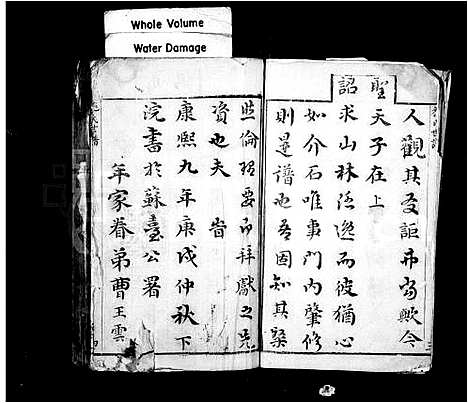 Whole Volume
Water Damage
人觀其受詎弗尚歟今
聖天子在上
詔求山林佚逸而彼猶心
如介石唯事門內肇修
則是譜也吾固知其桀
熙倫 要而拜獻之先
資也夫 旹
康熙九年庚戌仲秋下
浣書於蘇臺公署
年家眷弟曹王雲